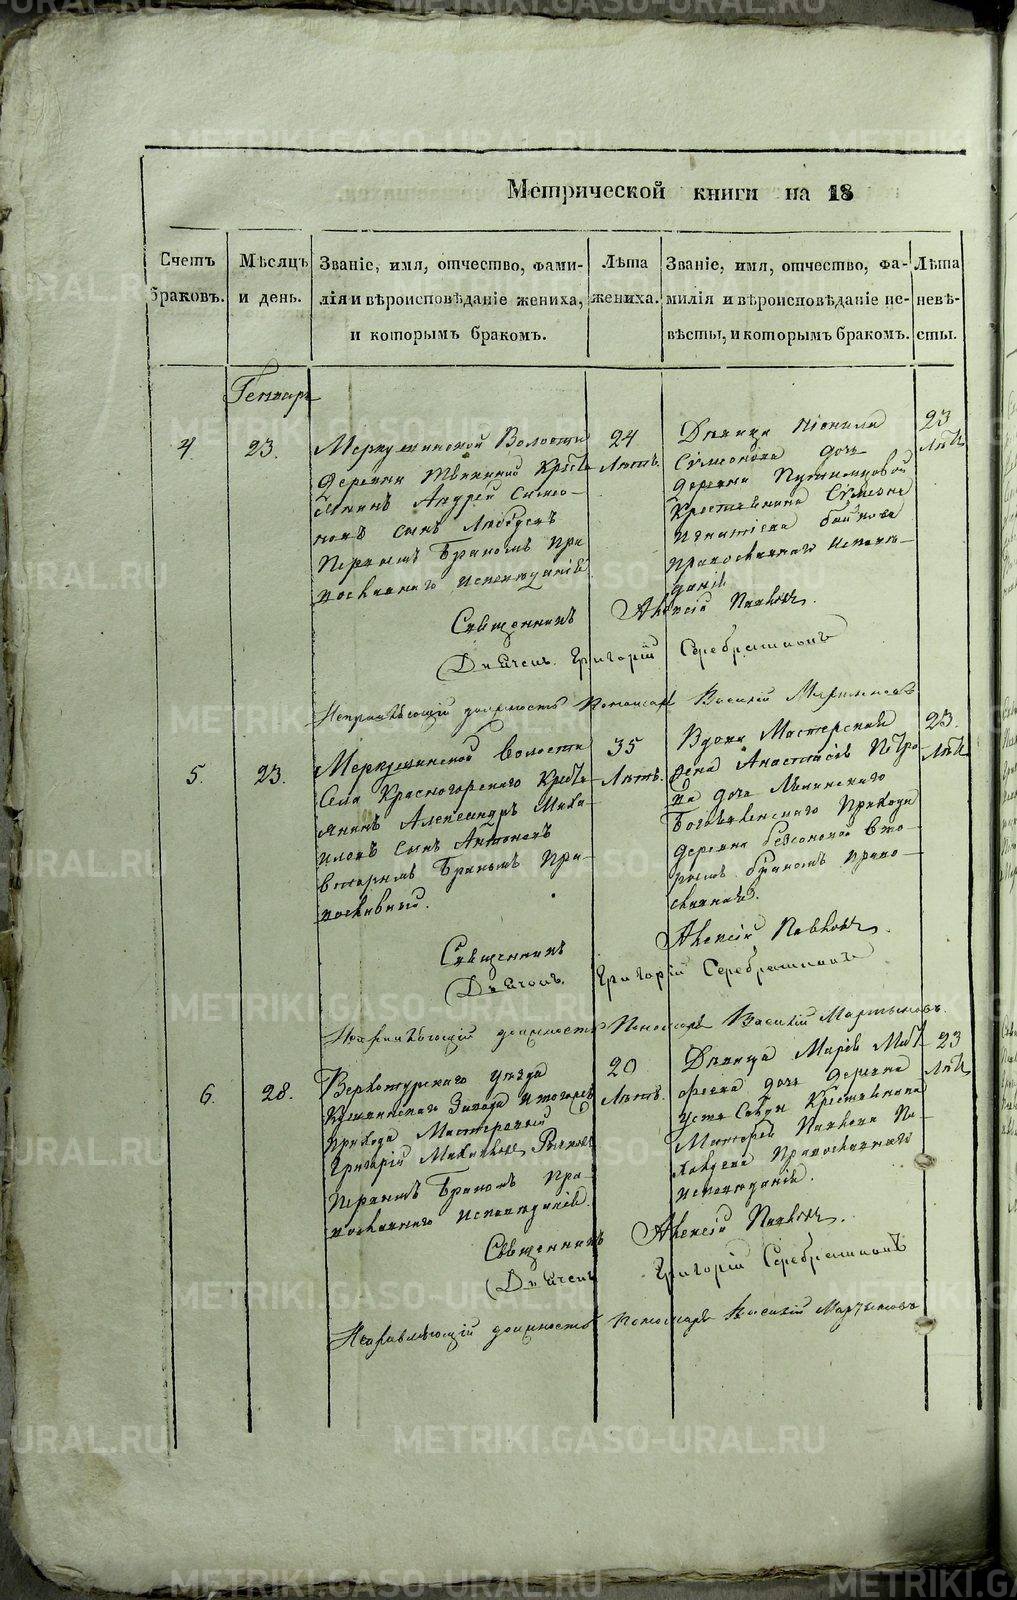 Метрической книги на 18
Счетъ браковъ.
Мѣсяцъ и день.
Званіе, имя, отчество, фами-
лія и вѣроисповѣданіе жениха,
и которымъ бракомъ.
Лѣта
жениха.
Званіе, имя, отчество, фа-
милія и вѣроисповѣданіе не-
вѣсты, и которымъ бракомъ.
Лѣта
невѣ-
сты.
Генварь
4
23.
Меркушинской Волости
Деревни Кресть
янинъ Андрей Симео-
новъ сынъ
Первымъ Бракомъ Пра
вославнаго Исповѣданія
24
Лѣтъ.
Дѣвица
Сѵмеонова дочь
Деревни
Крестьянина Сѵмеона
Игнатіева
Православнаго Исповѣ-
данія
23
Лѣтъ
Священникъ Алексій Павловъ.
Діаконъ Григорій Серебряниковъ
Исправляющій должность Пономаря Василій Мартыновъ
5.
23.
Меркушинской волости
Села Красногорскаго Кресть
янинъ Александръ Миха-
иловъ сынъ Антоновъ
вторымъ Бракомъ Пра-
вославный.
35
Лѣтъ.
Вдова Мастерская
жена Анастасія Петро
ва дочь Лялинскаго
Богоявленскаго Прихода
Деревни Безсоновой вто-
рымъ бракомъ Право-
славная.
23.
Лѣтъ
Священникъ Алексій Павловъ.
Діаконъ Григорій Серебряниковъ
Исправляющій должность Пономаря Василій Мартыновъ.
6.
28.
Верхотурскаго уѣзда
Кушвинскаго Завода и тогожъ
Прихода Мастеровый
Григорій Михайловъ
Первымъ Бракомъ Пра-
вославнаго Исповѣданія.
20
Лѣтъ.
Дѣвица Марія Мат
ѳеева дочь Деревни
Усть Салды Крестьянина
Матѳея Павлова По-
Православнаго
Исповѣданія.
23
Лѣтъ
Священникъ Алексій Павловъ.
Діаконъ Григорій Серебряниковъ
Исправляющій должность Пономаря Василій Мартыновъ
METRIKI.GASO-URAL.RU